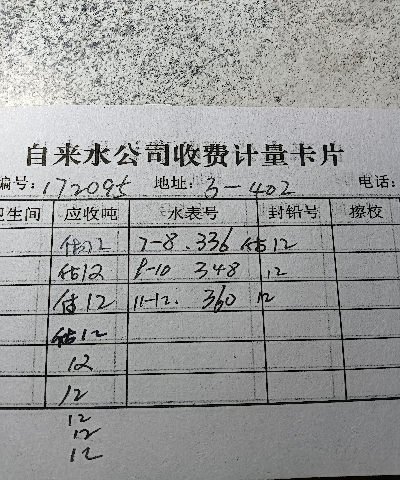 自来水公司收费计量卡片
编号: 172095 地址: 3-402 电话:
卫生间 应收吨 水表号 封铅号 擦校
估12 7-8. 336 估12
估12 8-10 348 12
估12 11-12. 360 12
估12
12
12
12
12
12